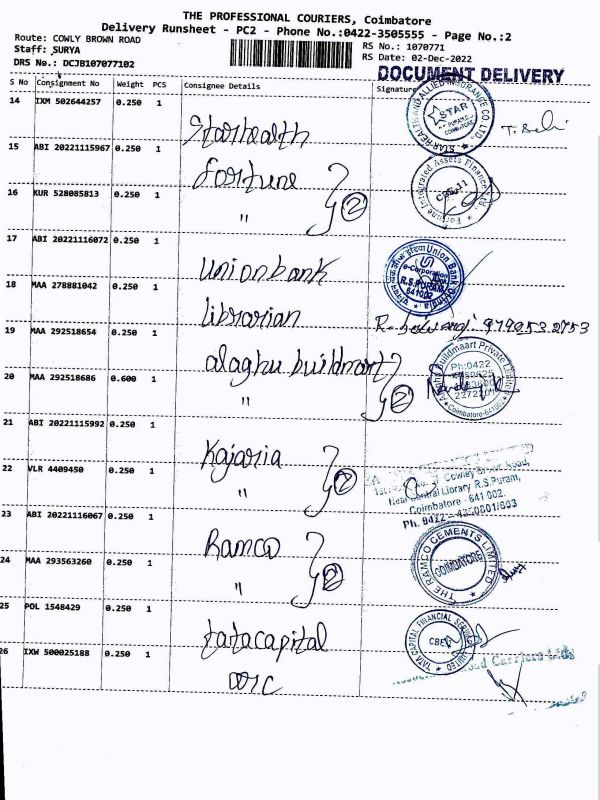 THE PROFESSIONAL COURIERS, Coimbatore
Delivery Runsheet - PC2 - Phone No.:0422-3505555 - Page No.:2
Route: COWLY BROWN ROAD
RS No.: 1070771
Staff: SURYA
RS Date: 02-Dec-2022
DRS No.: DCJB107077102
DOCUMENT DELIVERY
S No Consignment No Weight PCS Consignee Details Signature
14 IXM 502644257 0.250 1 Starhealth
STAR HEALTH AND ALLIED INSURANCE CO. LTD. STAR COIMBATORE
15 ABI 20221115967 0.250 1 fortune
Fortune Integrated Assets Finance Ltd.
16 KUR 528085813 0.250 1 " 2
17 ABI 20221116072 0.250 1 Unionbank
Union Bank of India
e-Corporation Bank
R.S.PURAM
641002
18 MAA 278881042 0.250 1 librarian
19 MAA 292518654 0.250 1 alaghu buildmart
Alaghu Buildmaart Private Limited
Ph:0422
Coimbatore-641002
20 MAA 292518686 0.600 1 " 2
21 ABI 20221115992 0.250 1 Kajaria
Cowley Brown Road,
Near Central Library R.S.Puram,
Coimbatore - 641 002.
22 VLR 4409450 0.250 1 " 2
23 ABI 20221116067 0.250 1 Ramco
THE RAMCO CEMENTS LIMITED COIMBATORE
24 MAA 293563260 0.250 1 " 2
25 POL 1548429 0.250 1 tatacapital
TATA CAPITAL FINANCIAL SERVICES LIMITED CBE
26 IXW 500025188 0.250 1
Road Carriers Ltd